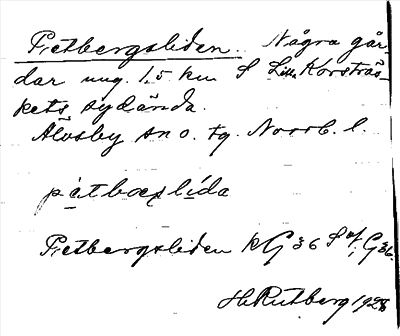 Pietbergsliden. Några går-
dar ung. 1,5 km S Lill Korsträs-
kets sydända.
Älvsby sn o. tg. Norrb. l.
pìtbærslída
Pietbergsliden kG 36 S of. G 36.
H. Rutberg 1928